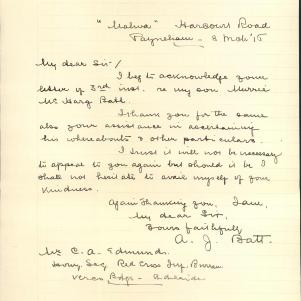 "Malwa" Harcourt Road
Payneham - 8 Mch '15
My dear Sir/
I beg to acknowledge your
letter of 3rd inst. re my son Murrie
Mc Harg Batt.
I thank you for the same
also your assistance in ascertaining
his whereabouts & other particulars.
I trust it will not be necessary
to appeal to you again but should it be I
shall not hesitate to avail myself of your
kindness.
Again thanking you, I am,
My dear Sir,
Yours faithfully
A. J. Batt.
Mr C. A. Edmunds.
Sec Red Cross Inf. Bureau
Verco Bdgs - Adelaide